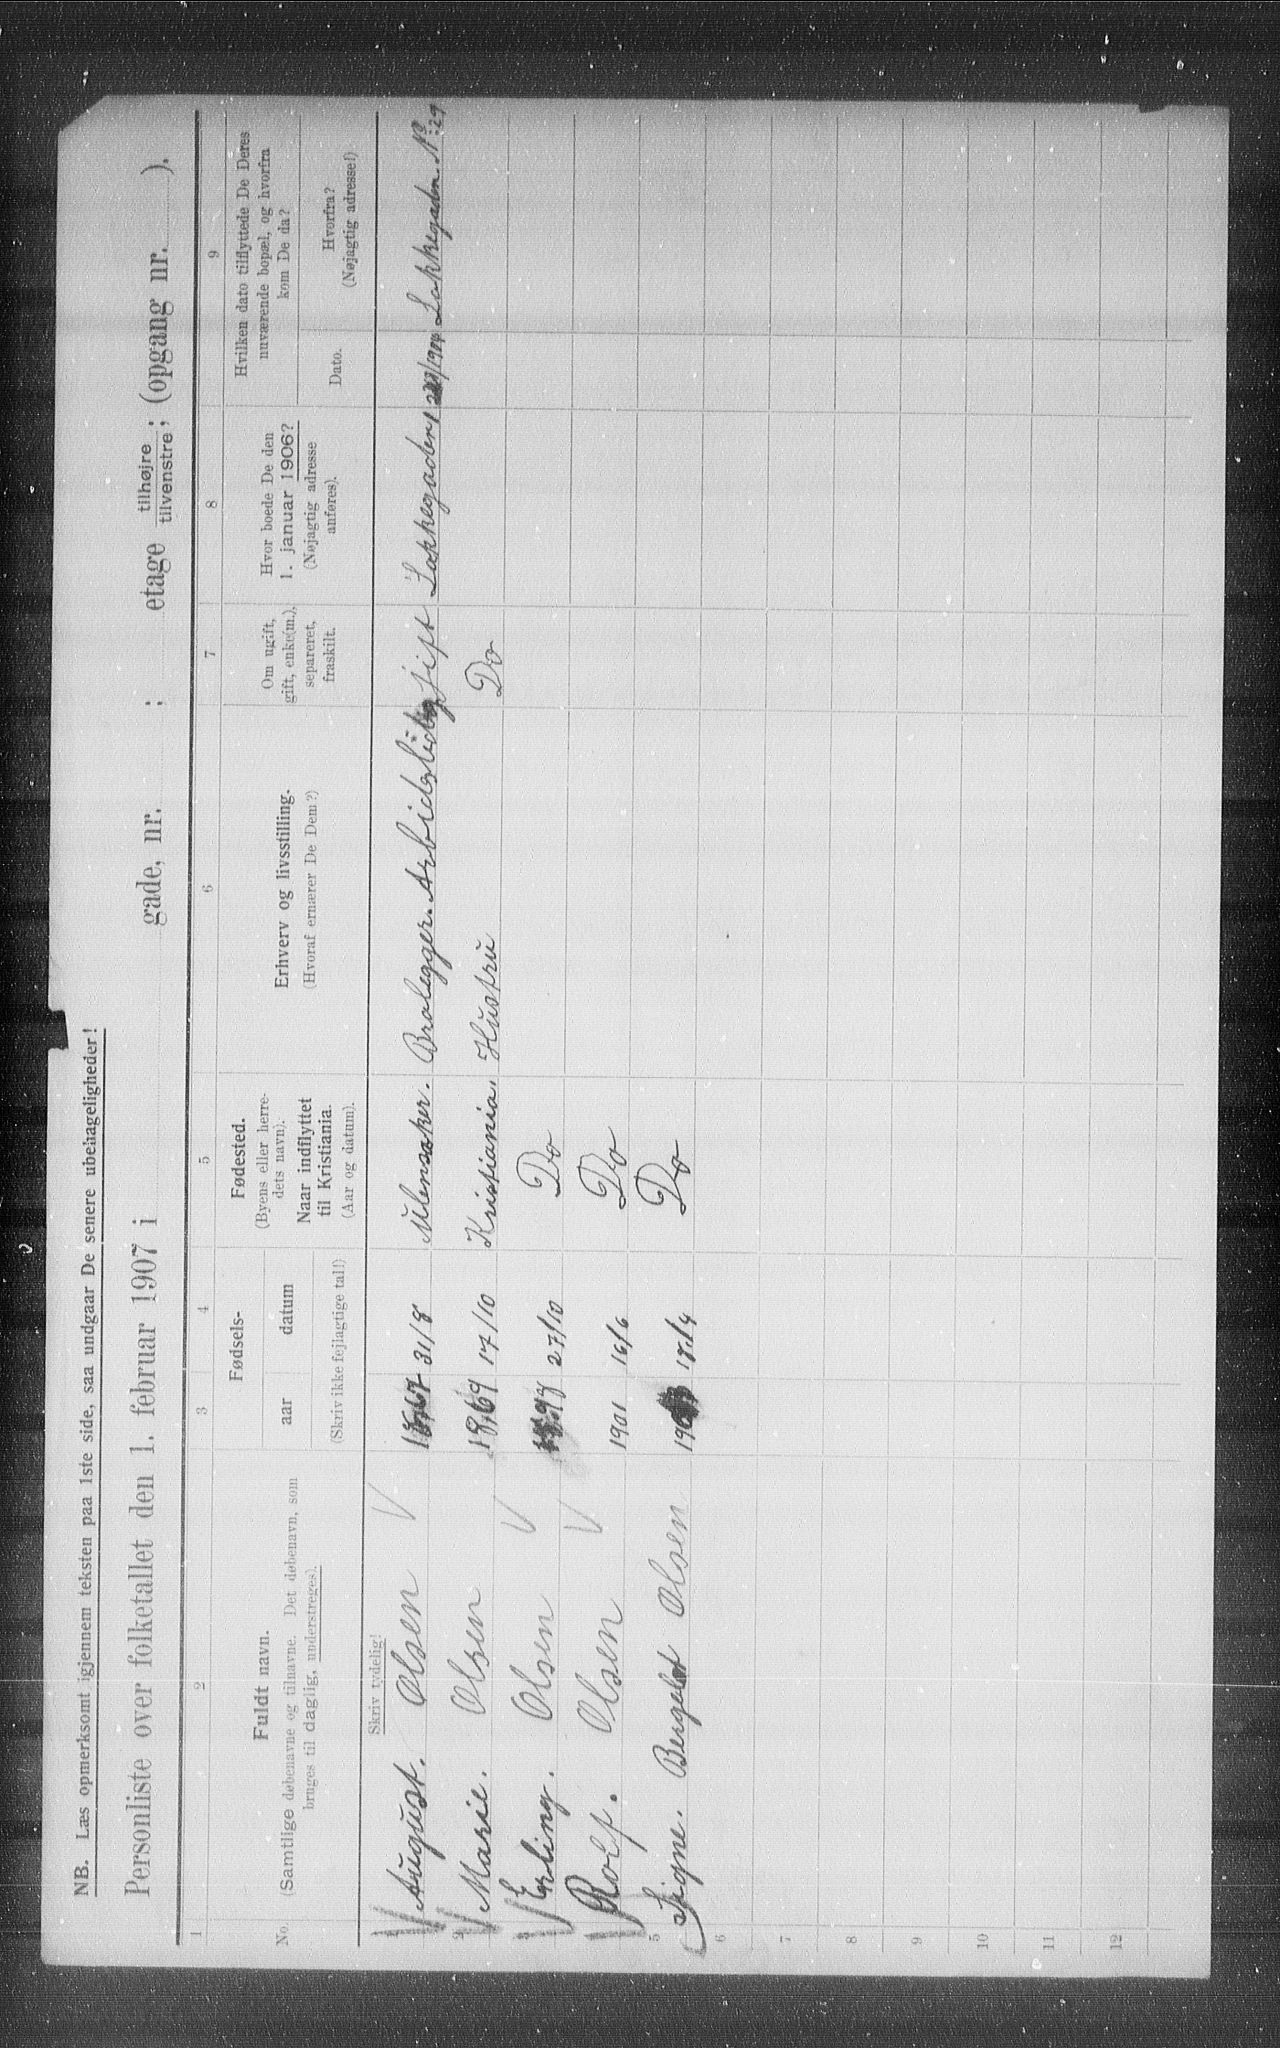 NB. Læs opmerksomt igjennem teksten paa 1ste side, saa undgaar De senere ubehageligheder!
Personliste over folketallet den 1. februar 1907 i gade, nr. ; etage tilhøjre tilvenstre; (opgang nr. ).
1 2 3 4 5 6 7 8 9
No. Fuldt navn. (Samtlige døbenavne og tilnavne. Det døbenavn, som bruges til daglig, understreges).
Fødsels- aar datum (Skriv ikke fejlagtige tal!)
Fødested. (Byens eller herredets navn). Naar indflyttet til Kristiania. (Aar og datum).
Erhverv og livsstilling. (Hvoraf ernærer De Dem?)
Om ugift, gift, enke(m.), separeret, fraskilt.
Hvor boede De den 1. januar 1906? (Nøjagtig adresse anføres).
Hvilken dato tilflyttede De Deres nuværende bopæl, og hvorfra kom De da?
Dato. Hvorfra? (Nøjagtig adresse!)
Skriv tydelig!
August. Olsen 1867 31/8 Ulensaker. Brolegger. Arbidsledig gift Løkkegaden 1904 Løkkegaden No 29
2 Marie. Olsen 1869 17/10 Kristiania. Hustru Do
Erling. Olsen 27/10 Do
Rolf. Olsen 1901 16/6 Do
5 Signe. Bergliot Olsen 18/4 Do
6
7
8
9
10
11
12